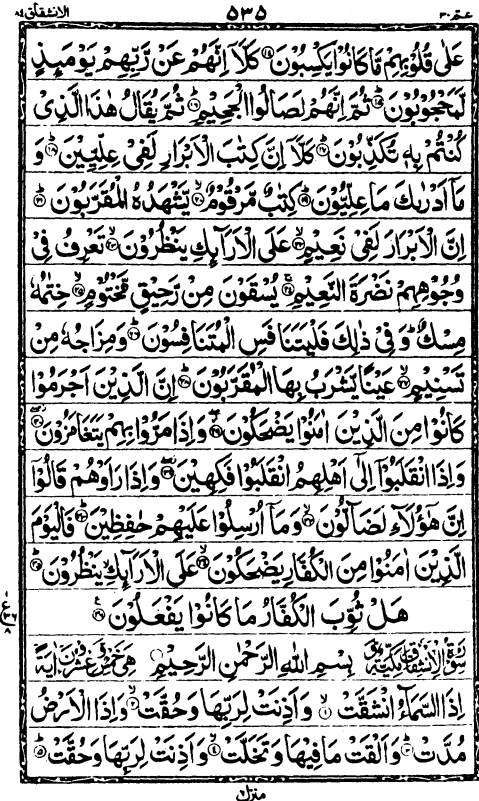 عم ٣٠ ٥٣٥ الانشقاق ٨٤
عَلٰى قُلُوْبِهِمْ مَّا كَانُوْا يَكْسِبُوْنَ ﴿١٤﴾ كَلَّاۤ اِنَّهُمْ عَنْ رَّبِّهِمْ يَوْمَىِٕذٍ
لَّمَحْجُوْبُوْنَ ﴿١٥﴾ ثُمَّ اِنَّهُمْ لَصَالُوا الْجَحِيْمِ ﴿١٦﴾ ثُمَّ يُقَالُ هٰذَا الَّذِىْ
كُنْتُمْ بِهٖ تُكَذِّبُوْنَ ﴿١٧﴾ كَلَّاۤ اِنَّ كِتٰبَ الْاَبْرَارِ لَفِىْ عِلِّيِّيْنَ ﴿١٨﴾ وَ
مَاۤ اَدْرٰىكَ مَا عِلِّيُّوْنَ ﴿١٩﴾ كِتٰبٌ مَّرْقُوْمٌ ﴿٢٠﴾ يَّشْهَدُهُ الْمُقَرَّبُوْنَ ﴿٢١﴾
اِنَّ الْاَبْرَارَ لَفِىْ نَعِيْمٍ ﴿٢٢﴾ عَلَى الْاَرَآىِٕكِ يَنْظُرُوْنَ ﴿٢٣﴾ تَعْرِفُ فِىْ
وُجُوْهِهِمْ نَضْرَةَ النَّعِيْمِ ﴿٢٤﴾ يُسْقَوْنَ مِنْ رَّحِيْقٍ مَّخْتُوْمٍ ﴿٢٥﴾ خِتٰمُهٗ
مِسْكٌ ؕ وَفِىْ ذٰلِكَ فَلْيَتَنَافَسِ الْمُتَنَافِسُوْنَ ﴿٢٦﴾ وَمِزَاجُهٗ مِنْ
تَسْنِيْمٍ ﴿٢٧﴾ عَيْنًا يَّشْرَبُ بِهَا الْمُقَرَّبُوْنَ ﴿٢٨﴾ اِنَّ الَّذِيْنَ اَجْرَمُوْا
كَانُوْا مِنَ الَّذِيْنَ اٰمَنُوْا يَضْحَكُوْنَ ﴿٢٩﴾ وَاِذَا مَرُّوْا بِهِمْ يَتَغَامَزُوْنَ ﴿٣٠﴾
وَاِذَا انْقَلَبُوْۤا اِلٰٓى اَهْلِهِمُ انْقَلَبُوْا فَكِهِيْنَ ﴿٣١﴾ وَاِذَا رَاَوْهُمْ قَالُوْۤا
اِنَّ هٰۤؤُلَآءِ لَضَآلُّوْنَ ﴿٣٢﴾ وَمَاۤ اُرْسِلُوْا عَلَيْهِمْ حٰفِظِيْنَ ﴿٣٣﴾ فَالْيَوْمَ
الَّذِيْنَ اٰمَنُوْا مِنَ الْكُفَّارِ يَضْحَكُوْنَ ﴿٣٤﴾ عَلَى الْاَرَآىِٕكِ يَنْظُرُوْنَ ﴿٣٥﴾
هَلْ ثُوِّبَ الْكُفَّارُ مَا كَانُوْا يَفْعَلُوْنَ ﴿٣٦﴾
سُوْرَةُ الْاِنْشِقَاقِ مَكِّيَّةٌ بِسْمِ اللهِ الرَّحْمٰنِ الرَّحِيْمِ وَّهِىَ خَمْسٌ وَّعِشْرُوْنَ اٰيَةً
اِذَا السَّمَآءُ انْشَقَّتْ ﴿١﴾ وَاَذِنَتْ لِرَبِّهَا وَحُقَّتْ ﴿٢﴾ وَاِذَا الْاَرْضُ
مُدَّتْ ﴿٣﴾ وَاَلْقَتْ مَا فِيْهَا وَتَخَلَّتْ ﴿٤﴾ وَاَذِنَتْ لِرَبِّهَا وَحُقَّتْ ﴿٥﴾
منزل ٧